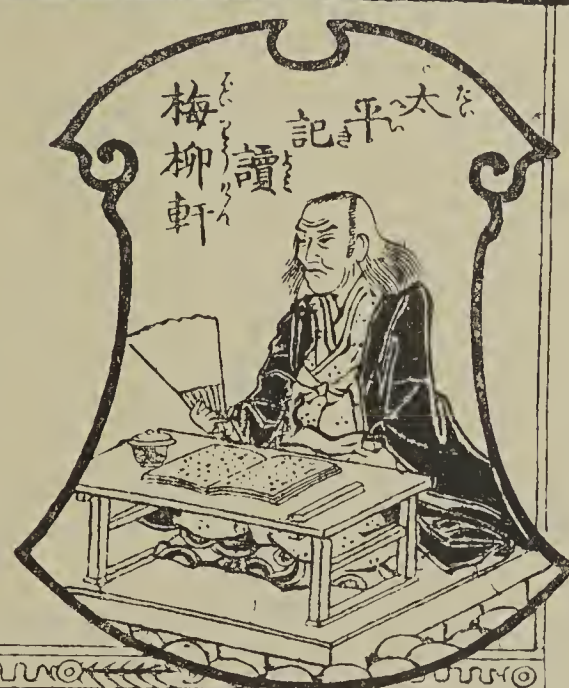 太平記讀
梅柳軒